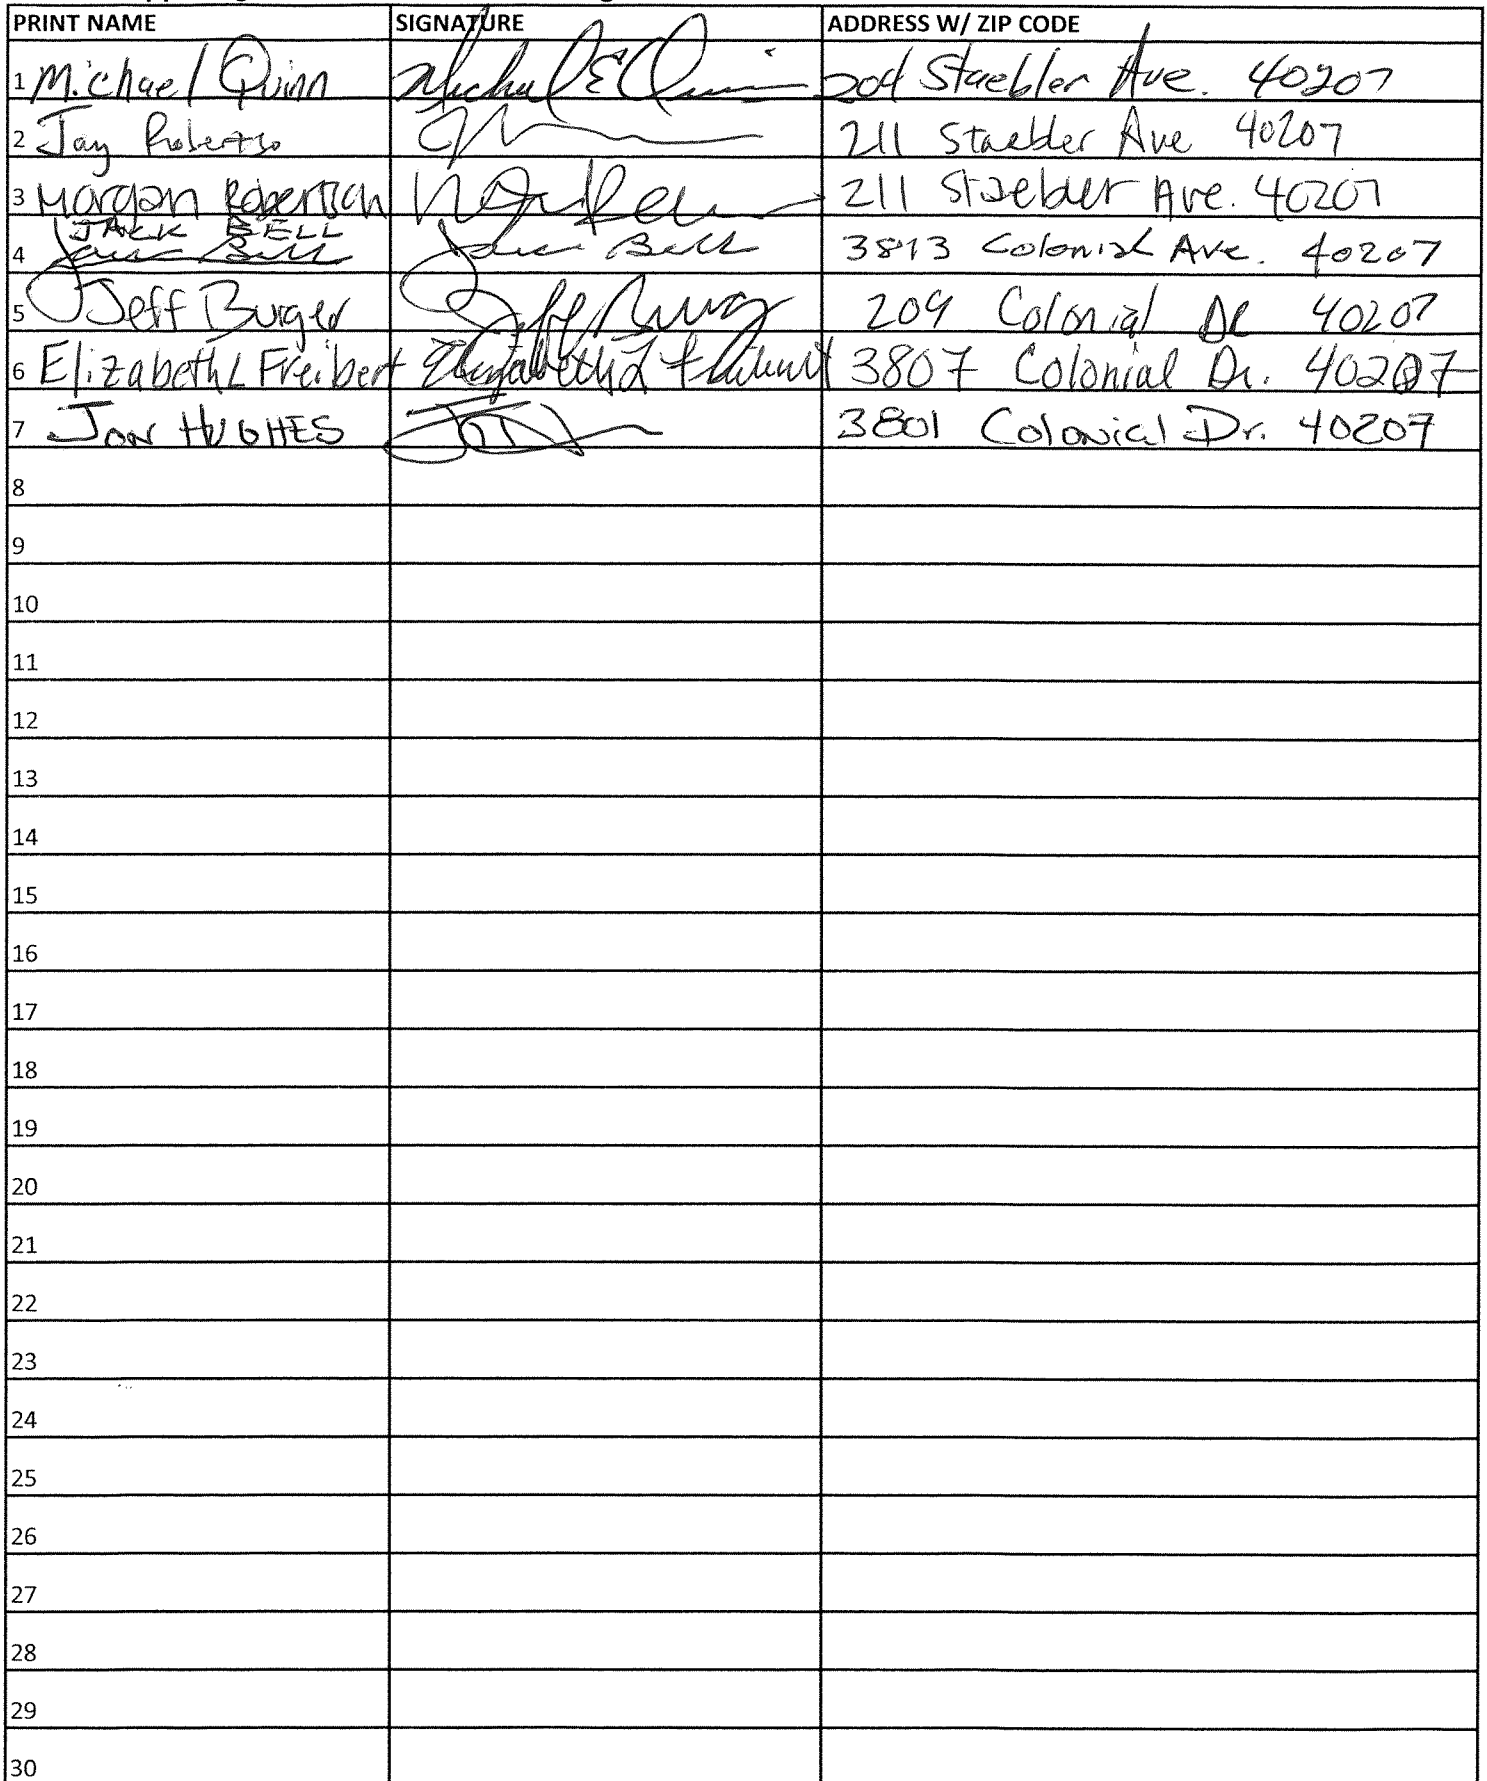 PRINT NAME SIGNATURE ADDRESS W/ ZIP CODE
1 Michael Quinn Michael E Quinn 204 Staebler Ave. 40207
2 Jay Robertso 211 Staebler Ave 40207
3 Morgan Robertson 211 Staebler Ave. 40207
JACK BELL
4 Bell 3813 Colonial Ave. 40207
5 Jeff Burger Jeff Burg 209 Colonial Dr 40207
6 Elizabeth L Freibert Elizabeth L Freibert 3807 Colonial Dr. 40207
7 Jon HUGHES 3801 Colonial Dr. 40207
8
9
10
11
12
13
14
15
16
17
18
19
20
21
22
23
24
25
26
27
28
29
30